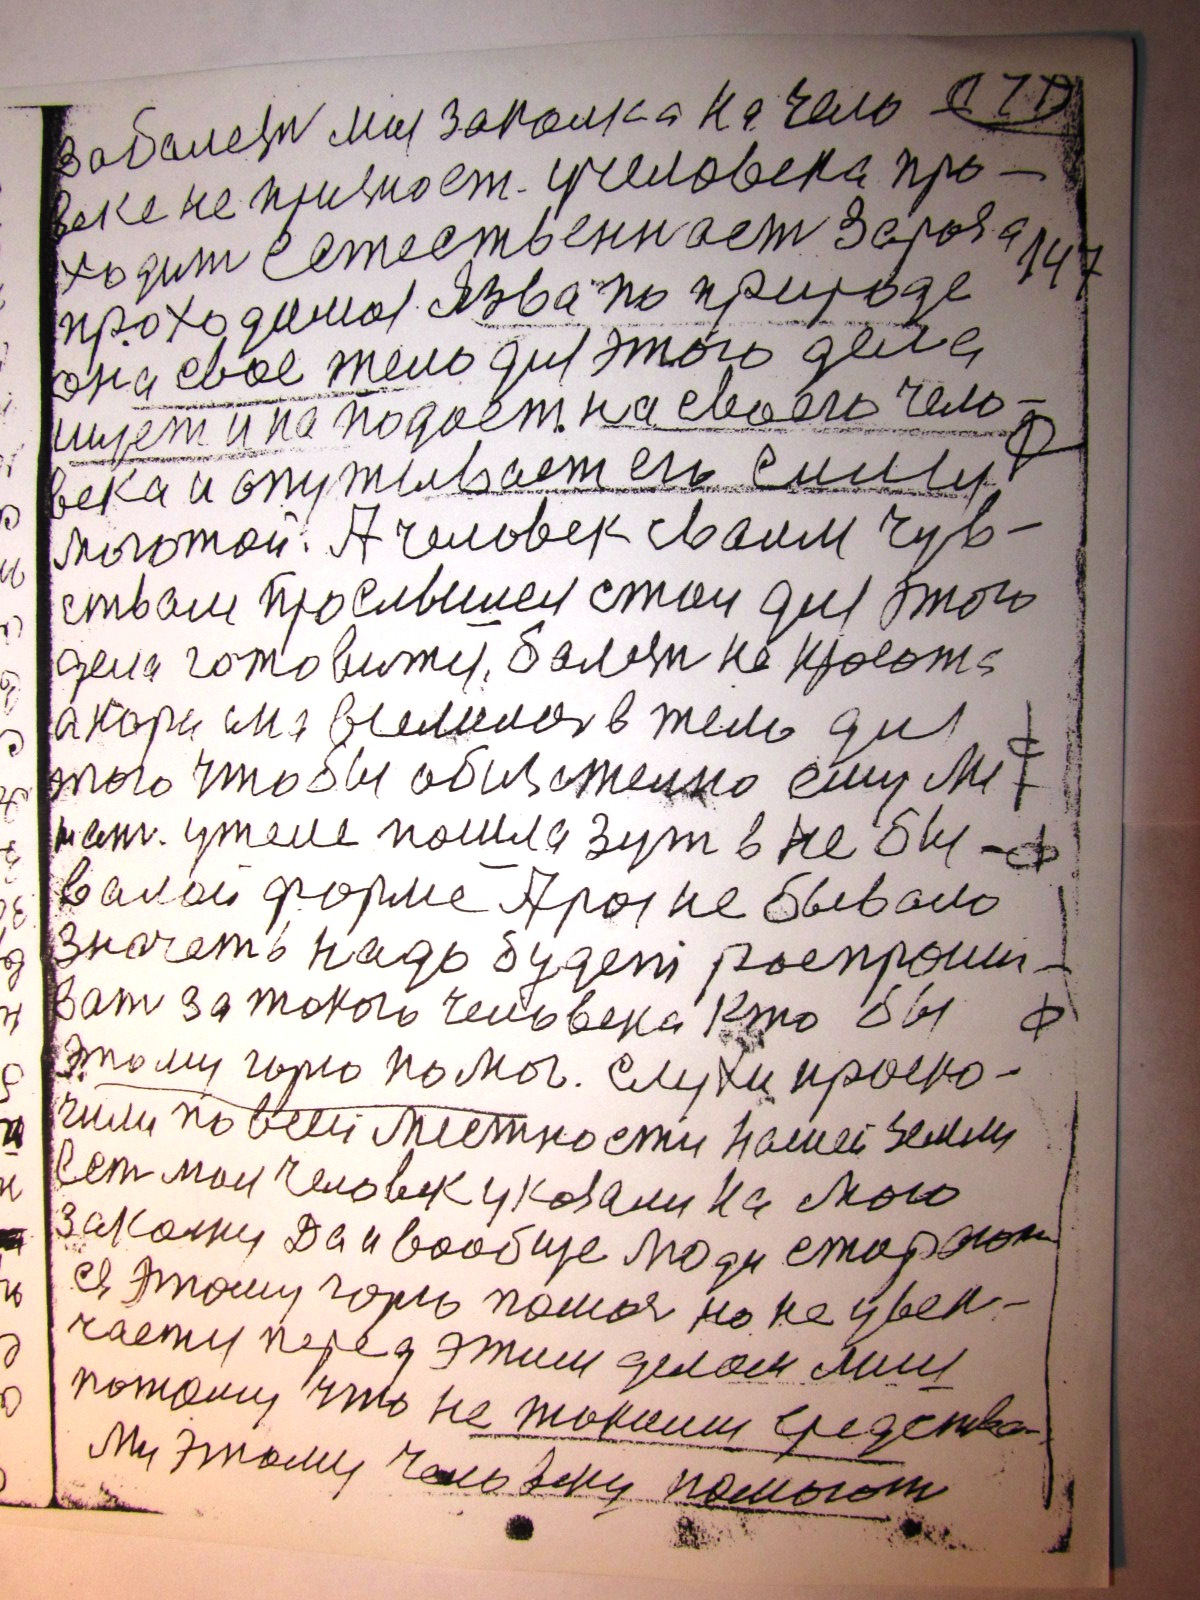 заболези мия законка на чело
веке не приязност. учеловека про-
ходит Естественност зароза 147
проходимоя Язва по природе
она свое тело для этого дела
ищет и на подает. на своего чело-
века и опутывает его силы
моготой. А человек своим чув-
ствам прослышел стал для этого
дела готовится.
вселилось в тело для
того что бы обизательно ему ме
шат. у теле пошла зут в не бы-
валой форме Про не бывало
значеть надо будет роспроши-
ват за такого человека кто бы
этому горю помог. Слухи проско-
чили по всей местности нашей земли
Ест мол человек указали на мого
законку Да и вообще люди старают
ся этому горю помоч но не увен-
чаеты перед этим делом мия
потому что не такими средства-
Ми этому человеку помогат